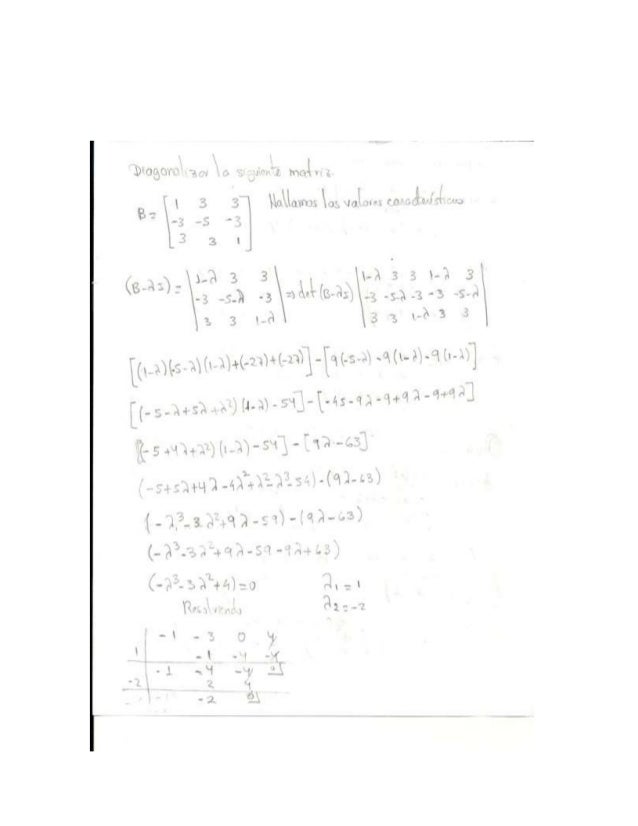 Diagonalizar la siguiente matriz.
B = [ 1 3 3 Hallamos los valores característicos
-3 -5 -3
3 3 1 ]
(B-λI) = | 1-λ 3 3 | => det (B-λI) | 1-λ 3 3 1-λ 3 |
| -3 -5-λ -3 | | -3 -5-λ -3 -3 -5-λ |
| 3 3 1-λ | | 3 3 1-λ 3 3 |
[(1-λ)(-5-λ)(1-λ)+(-27)+(-27)] - [9(-5-λ)-9(1-λ)-9(1-λ)]
[(-5-λ+5λ+λ²)(1-λ)-54] - [-45-9λ-9+9λ-9+9λ]
[(-5+4λ+λ²)(1-λ)-54] - [9λ-63]
(-5+5λ+4λ-4λ²+λ²-λ³-54)-(9λ-63)
(-λ³-3λ²+9λ-59)-(9λ-63)
(-λ³-3λ²+9λ-59-9λ+63)
(-λ³-3λ²+4)=0 λ₁=1
Resolviendo λ₂=-2
-1 -3 0 4
1 -1 -4 -4
-1 -4 -4 0
-2 2 4
-2 0